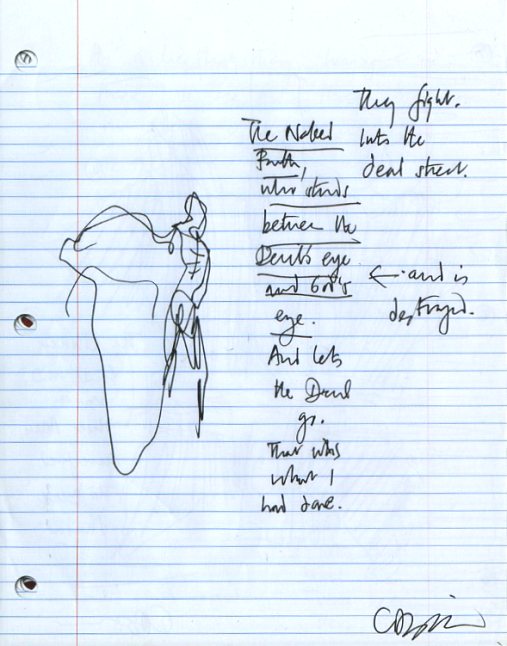 The Naked
Truth,
who stands
between the
Devil's eye
and God's
eye.
And lets
the Devil
go.
That was
what I
had done.
They fight.
Into the
dead street.
← and is
destroyed.